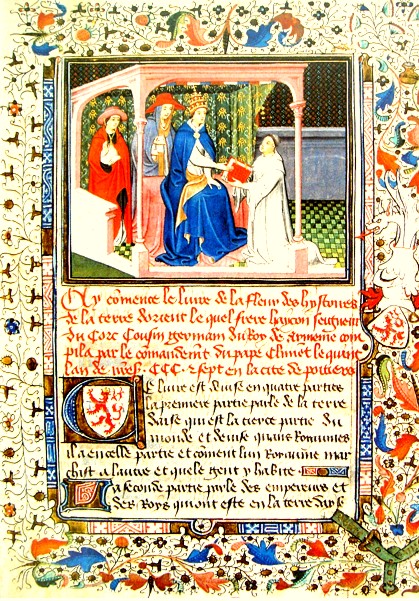 Cy cōmence le livre de la fleur des hystoires
de la terre dorient le quel frere haycon seigneur
du Corc Cousin germain du Roy de armenie com
pila par le comandemēt du pape Climēt le quint
lan de CCC et sept en la cite de poitiers
Ce livre est devise en quatre parties
la premiere partie parle de la terre
dasie qui est la tierce partie du
monde et devise quans Roiaumes
il a en celle partie et cōment lun Royaume mar
chist a lautre et quele gent y habite
La seconde partie parle des empereurs et
des Roys qui ont este en la terre dasie